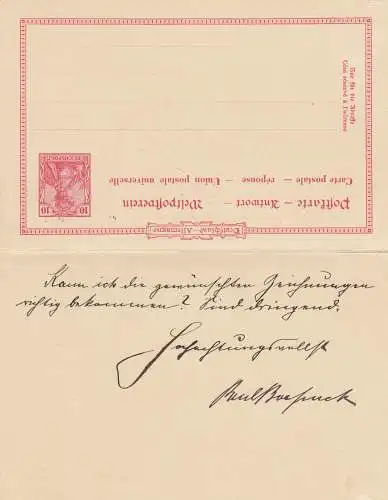 Deutschland – Allemagne
Postkarte – Antwort – Weltpostverein
Carte postale – réponse – Union postale universelle
Nur für die Adresse
Côté réservé à l'adresse
10 10
REICHSPOST
Kann ich die gewünschten Zeichnungen
richtig bekommen? Sind dringend.
Hochachtungsvollst
Paul